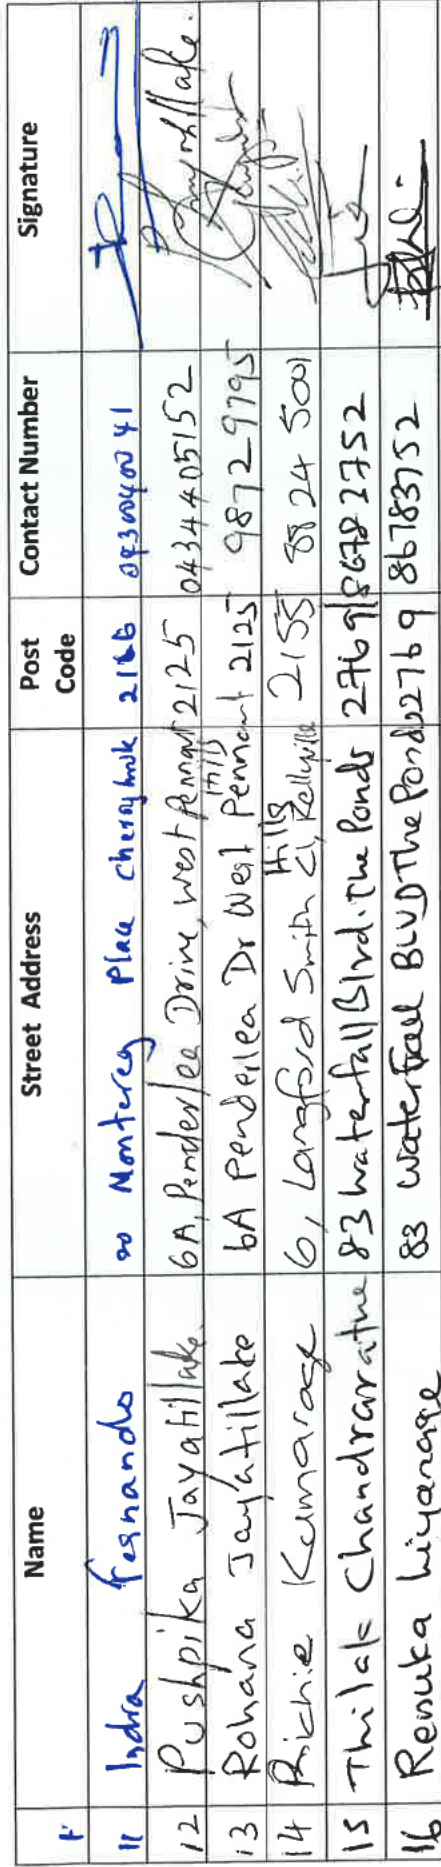 Name Street Address Post Code Contact Number Signature
11 Indra Fernando 20 Monterey Place cherrybrook
12 Pushpika Jayatillake. 6A, Penderlea Drive, West Pennant 2125 0434405152
13 Rohana Jayatillake 6A Penderlea Dr West Pennant Hills 2125 98729795
14 Richie Kumarage 6, Langford Smith Cl, Kellyville Hills 2155 8824 5001
15 Thilak Chandraratne 83 Waterfall Blvd. The Ponds 2769 86783752
16 Renuka Liyanage 83 Waterfall BLVD The Ponds 2769 86783752